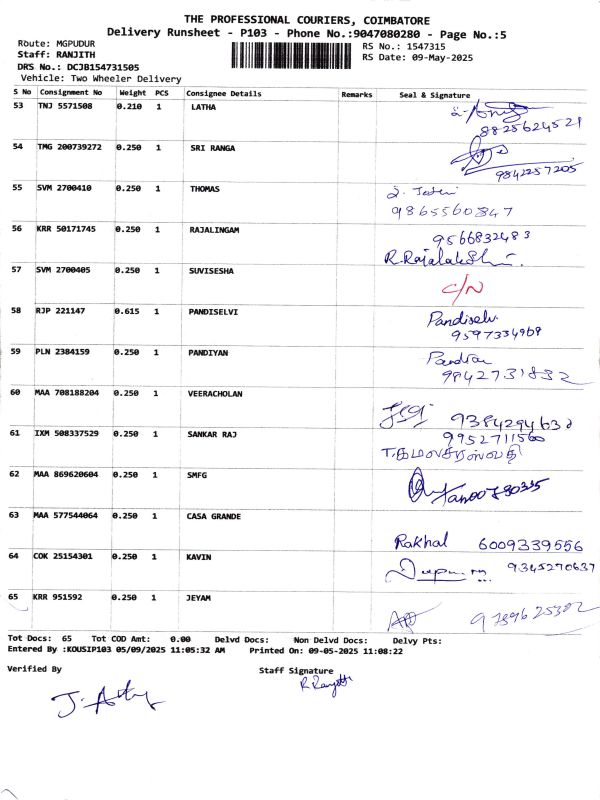 THE PROFESSIONAL COURIERS, COIMBATORE
Delivery Runsheet - P103 - Phone No.:9047080280 - Page No.:5
Route: MGPUDUR
Staff: RANJITH
DRS No.: DCJB154731505
Vehicle: Two Wheeler Delivery
RS No.: 1547315
RS Date: 09-May-2025
S No Consignment No Weight PCS Consignee Details Remarks Seal & Signature
53 TNJ 5571508 0.210 1 LATHA
8825624521
54 TMG 200739272 0.250 1 SRI RANGA
9842257205
55 SVM 2700410 0.250 1 THOMAS
9865560847
56 KRR 50171745 0.250 1 RAJALINGAM
9566832483
R.Rajalakshmi
57 SVM 2700405 0.250 1 SUVISESHA
C/N
58 RJP 221147 0.615 1 PANDISELVI
Pandiselvi
9597334969
59 PLN 2384159 0.250 1 PANDIYAN
9842731832
60 MAA 708188204 0.250 1 VEERACHOLAN
9384294632
61 IXM 508337529 0.250 1 SANKAR RAJ
9952711560
T.கமலசரஸ்வதி
62 MAA 869620604 0.250 1 SMFG
63 MAA 577544064 0.250 1 CASA GRANDE
Rakhal 6009339556
64 COK 25154301 0.250 1 KAVIN
9345270637
65 KRR 951592 0.250 1 JEYAM
Tot Docs: 65 Tot COD Amt: 0.00 Delvd Docs: Non Delvd Docs: Delvy Pts:
Entered By :KOUSIP103 05/09/2025 11:05:32 AM Printed On: 09-05-2025 11:08:22
Verified By
Staff Signature